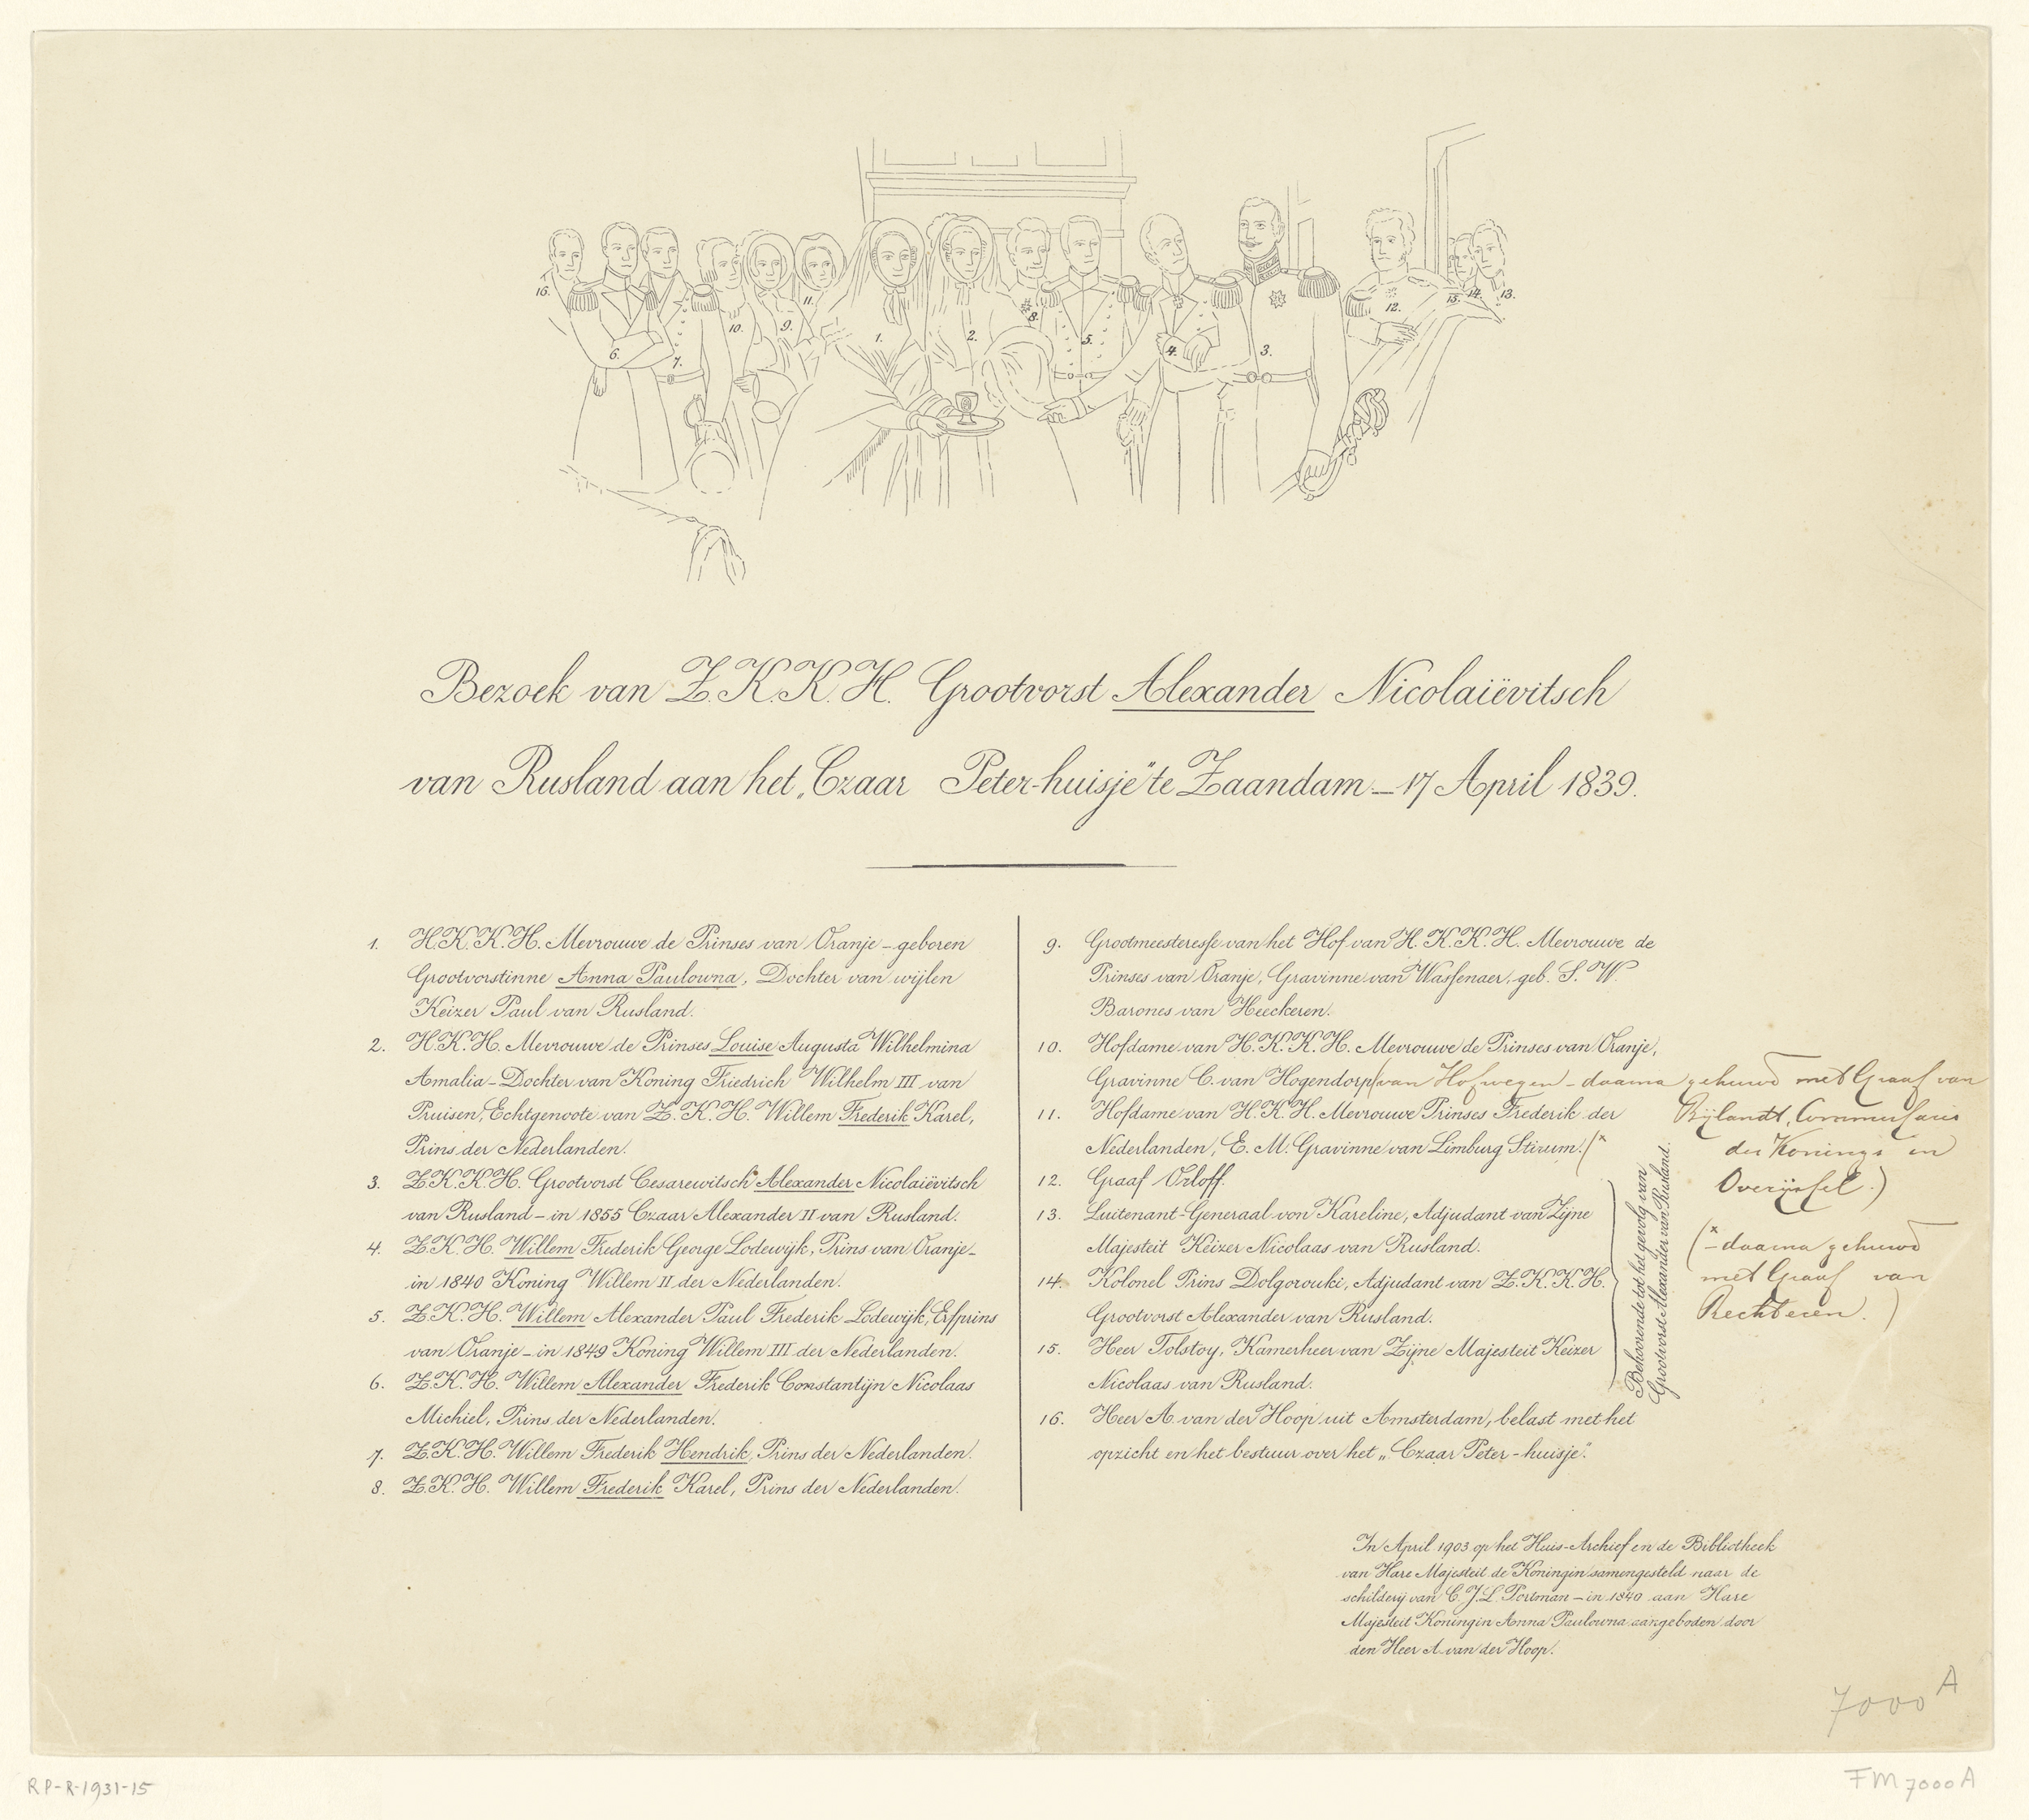 16.
6.
7.
10.
9.
11.
1.
2.
8.
5.
4.
3.
12.
15.
14.
13.
Bezoek van Z.K.K.H. Grootvorst Alexander Nicolaiëvitsch
van Rusland aan het „Czaar Peter-huisje" te Zaandam – 17 April 1839.
1. H.K.K.H. Mevrouwe de Prinses van Oranje – geboren
Grootvorstinne Anna Paulowna, Dochter van wijlen
Keizer Paul van Rusland.
2. H.K.H. Mevrouwe de Prinses Louise Augusta Wilhelmina
Amalia – Dochter van Koning Friedrich Wilhelm III van
Pruisen, Echtgenoote van Z.K.H. Willem Frederik Karel,
Prins der Nederlanden.
3. Z.K.K.H. Grootvorst Cesarewitsch Alexander Nicolaiëvitsch
van Rusland – in 1855 Czaar Alexander II van Rusland.
4. Z.K.H. Willem Frederik George Lodewijk, Prins van Oranje –
in 1840 Koning Willem II der Nederlanden.
5. Z.K.H. Willem Alexander Paul Frederik Lodewijk, Erfprins
van Oranje – in 1849 Koning Willem III der Nederlanden.
6. Z.K.H. Willem Alexander Frederik Constantijn Nicolaas
Michiel, Prins der Nederlanden.
7. Z.K.H. Willem Frederik Hendrik, Prins der Nederlanden.
8. Z.K.H. Willem Frederik Karel, Prins der Nederlanden.
9. Grootmeesteresse van het Hof van H.K.K.H. Mevrouwe de
Prinses van Oranje, Gravinne van Wassenaer, geb. S. W.
Barones van Heeckeren.
10. Hofdame van H.K.K.H. Mevrouwe de Prinses van Oranje,
Gravinne C. van Hogendorp (van Hofwegen – daarna gehuwd met Graaf van
Bijlandt, Commissaris
des Konings in
Overijssel.)
11. Hofdame van H.K.H. Mevrouwe Prinses Frederik der
Nederlanden, E. M. Gravinne van Limburg Stirum. (x
(x – daarna gehuwd
met Graaf van
Rechteren.)
12. Graaf Orloff.
13. Luitenant-Generaal von Kareline, Adjudant van Zijne
Majesteit Keizer Nicolaas van Rusland.
14. Kolonel Prins Dolgorouki, Adjudant van Z.K.K.H.
Grootvorst Alexander van Rusland.
15. Heer Tolstoy, Kamerheer van Zijne Majesteit Keizer
Nicolaas van Rusland.
Behoorende tot het gevolg van
Grootvorst Alexander van Rusland.
16. Heer A. van der Hoop uit Amsterdam, belast met het
opzicht en het bestuur over het „Czaar Peter-huisje".
In April 1903 op het Huis-Archief en de Bibliotheek
van Hare Majesteit de Koningin samengesteld naar de
schilderij van C.J.L. Portman – in 1840 aan Hare
Majesteit Koningin Anna Paulowna aangeboden door
den Heer A. van der Hoop.
7000 A
RP-R-1931-15
FM 7000 A